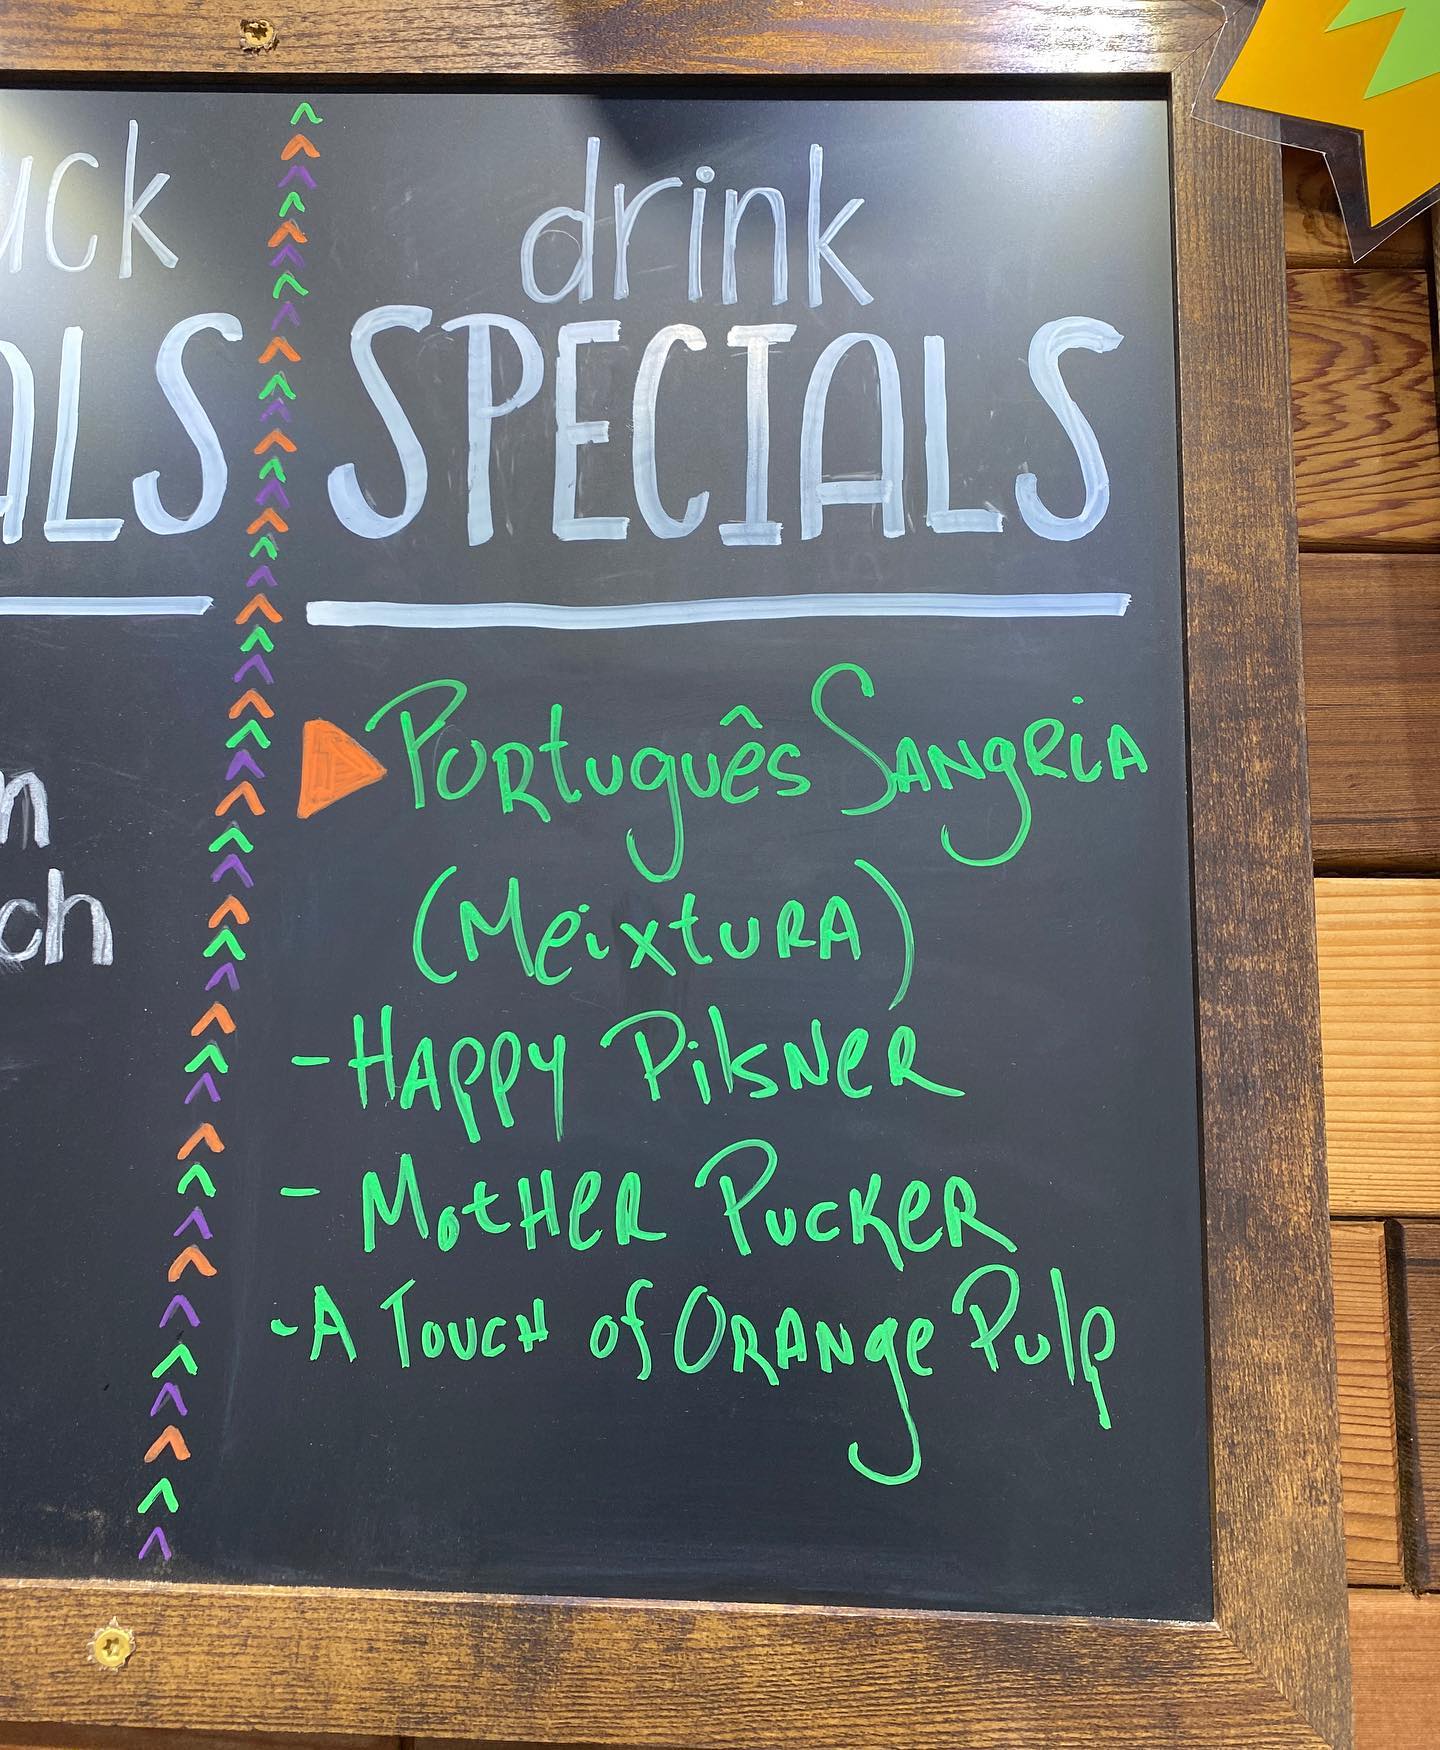 uck
ALS
n
ch
drink
SPECIALS
Português Sangria
(Meixtura)
- Happy Pilsner
- Mother Pucker
- A Touch of Orange Pulp